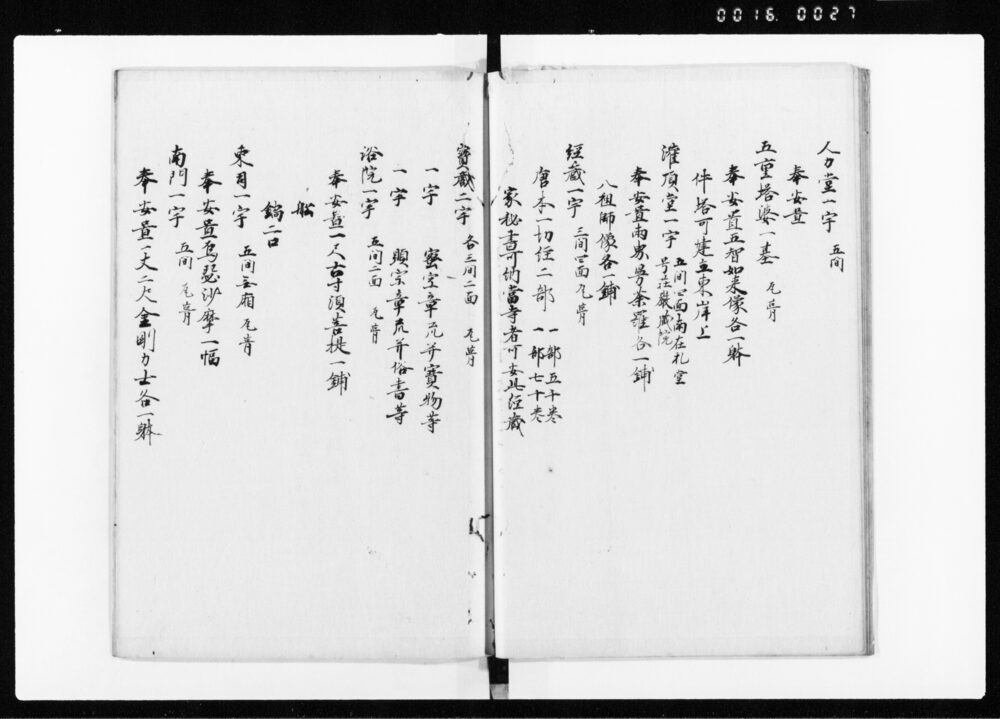 0016. 0027
人力堂一宇 五間
奉安置
五重塔婆一基 瓦葺
奉安置五智如来像各一躰
件塔可建立東岸上
灌頂堂一宇 五間四面南在礼堂
号荘厳蔵院
奉安置両界曼荼羅各一鋪
八祖師像各一鋪
経蔵一宇 三間四面瓦葺
唐本一切経二部 一部五千巻
一部七千巻
家秘書可納当寺者可安此経蔵
寳蔵二宇 各三間二面 瓦葺
一宇 密宗章疏并寳物等
一宇 顕宗章疏并俗書等
浴院一宇 五間二面 瓦葺
奉安置一尺古寸須菩提一鋪
船
鍋二口
東司一宇 五間無廂 瓦葺
奉安置烏瑟沙摩一幅
南門一宇 五間 瓦葺
奉安置一丈二尺金剛力士各一躰